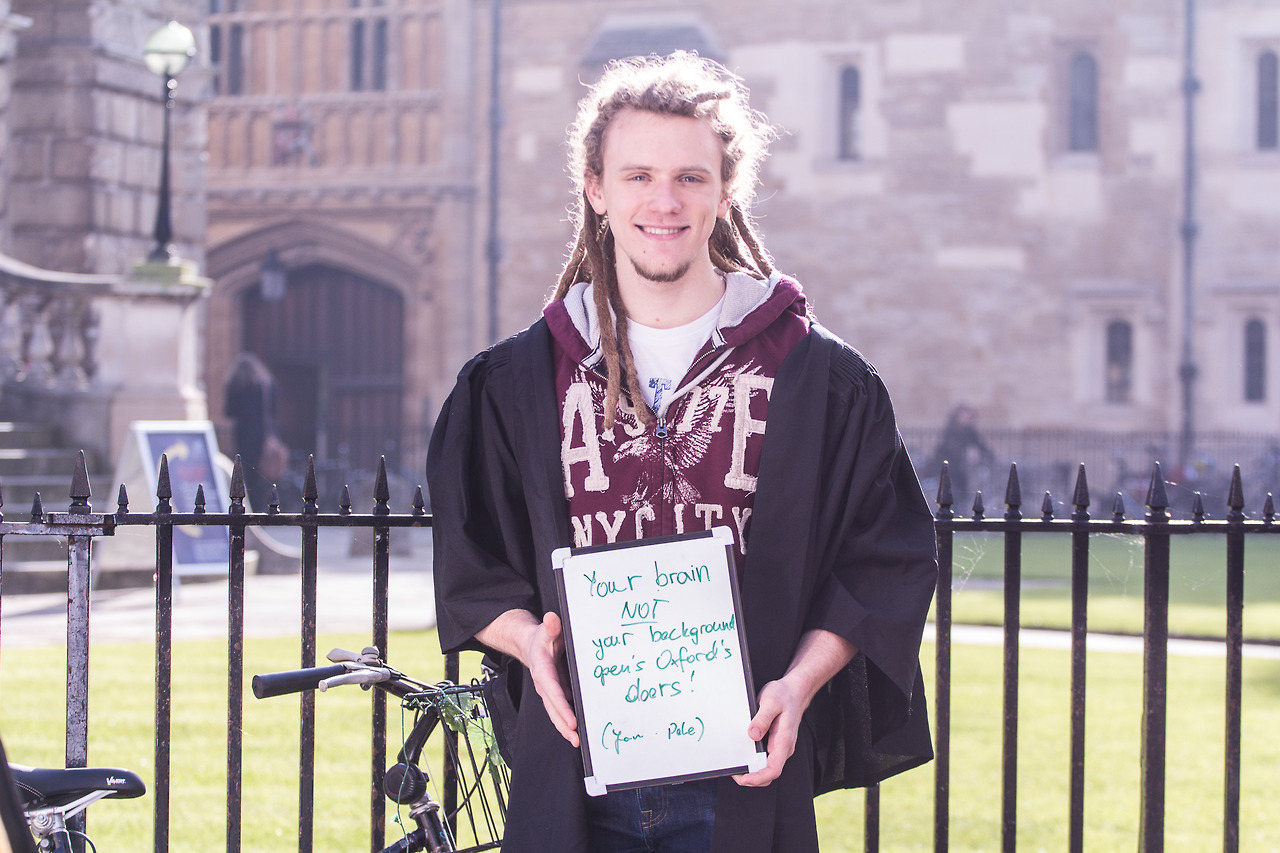 NYC CITY
Your brain
NOT
your background
open's Oxford's
doors!
Pole)